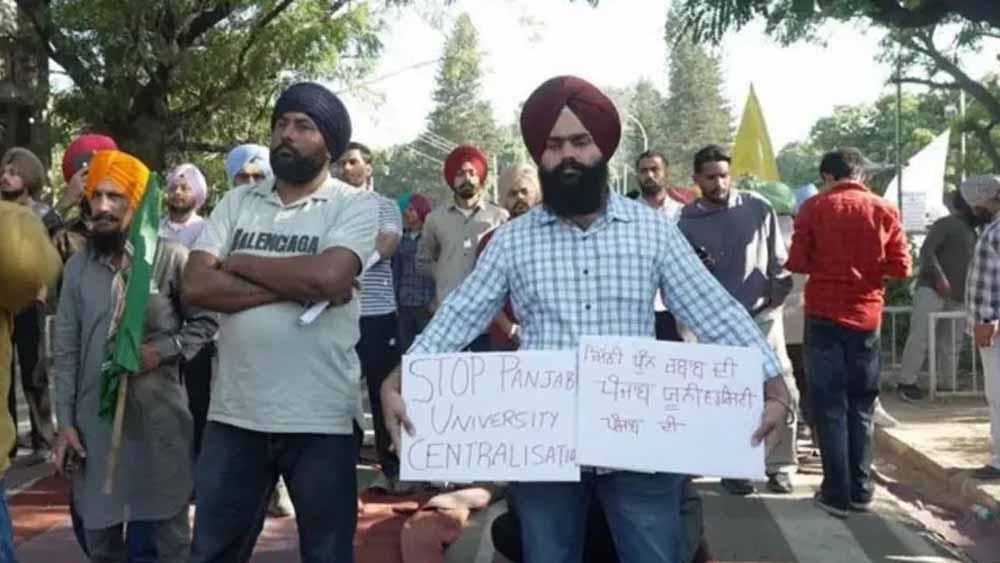 BALENCIAGA
STOP PANJAB
UNIVERSITY
CENTRALISATIO
ਮਿੱਠੀ ਧੁਨ ਰਬਾਬ ਦੀ
ਪੰਜਾਬ ਯੂਨੀਵਰਸਿਟੀ
ਪੰਜਾਬ ਦੀ-